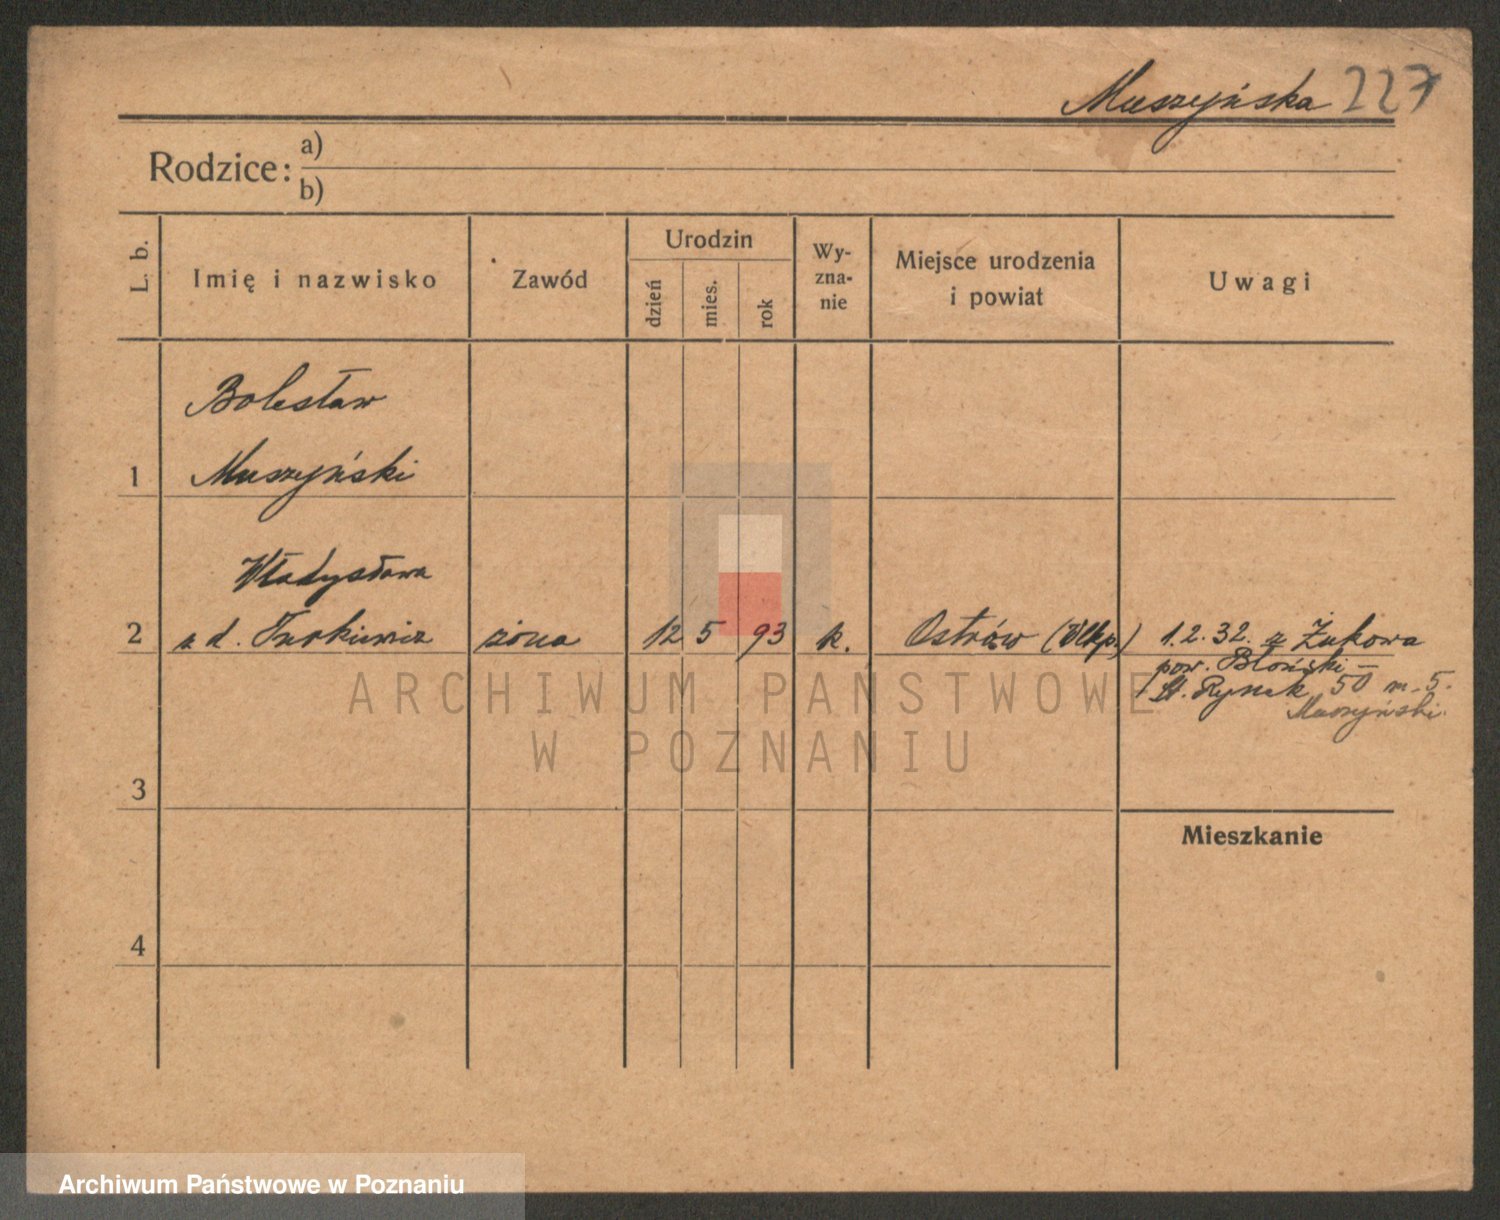 Muszyńska 227
Rodzice: a)
b)
L. b.
Imię i nazwisko
Zawód
Urodzin
dzień
mies.
rok
Wy-
zna-
nie
Miejsce urodzenia
i powiat
Uwagi
Bolesław
1 Muszyński
Władysława
2 z d. Turkiewicz żona 12 5 93 k. Ostrów (Wlkp.) 1.2.32. z Żukowa
pow. Błoński –
St. Rynek 50 m. 5.
Muszyński
ARCHIWUM PAŃSTWOWE
W POZNANIU
3
Mieszkanie
4
Archiwum Państwowe w Poznaniu